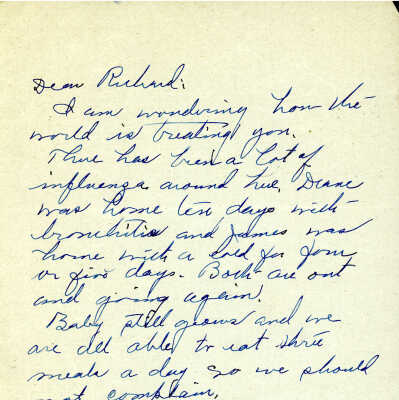 Dear Richard:
I am wondering how the
world is treating you.
There has been a lot of
influenza around here, Deane
was home ten days with
bronchitis and James was
home with a cold for four
or five days. Both are out
and going again.
Baby still grows and we
are all able to eat three
meals a day so we should
not complain.